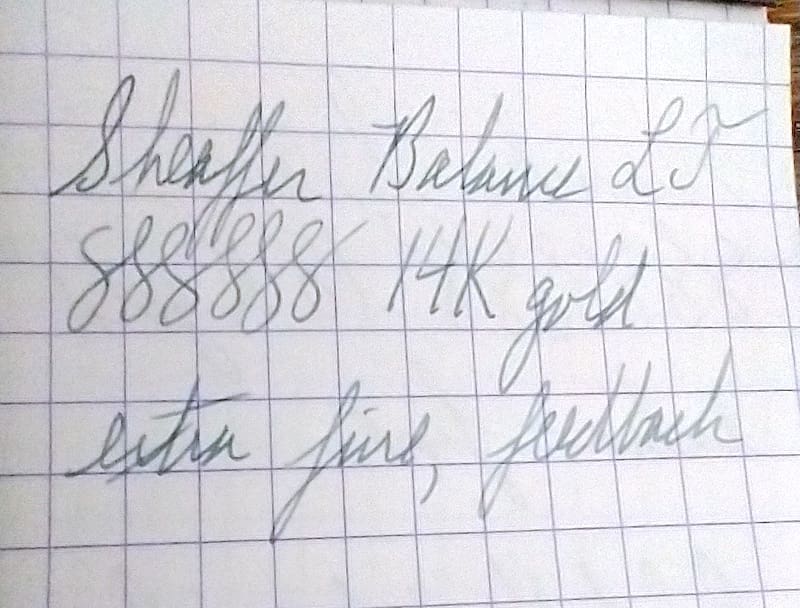 Sheaffer Balance LT
888888 14K gold
extra fine, feedback